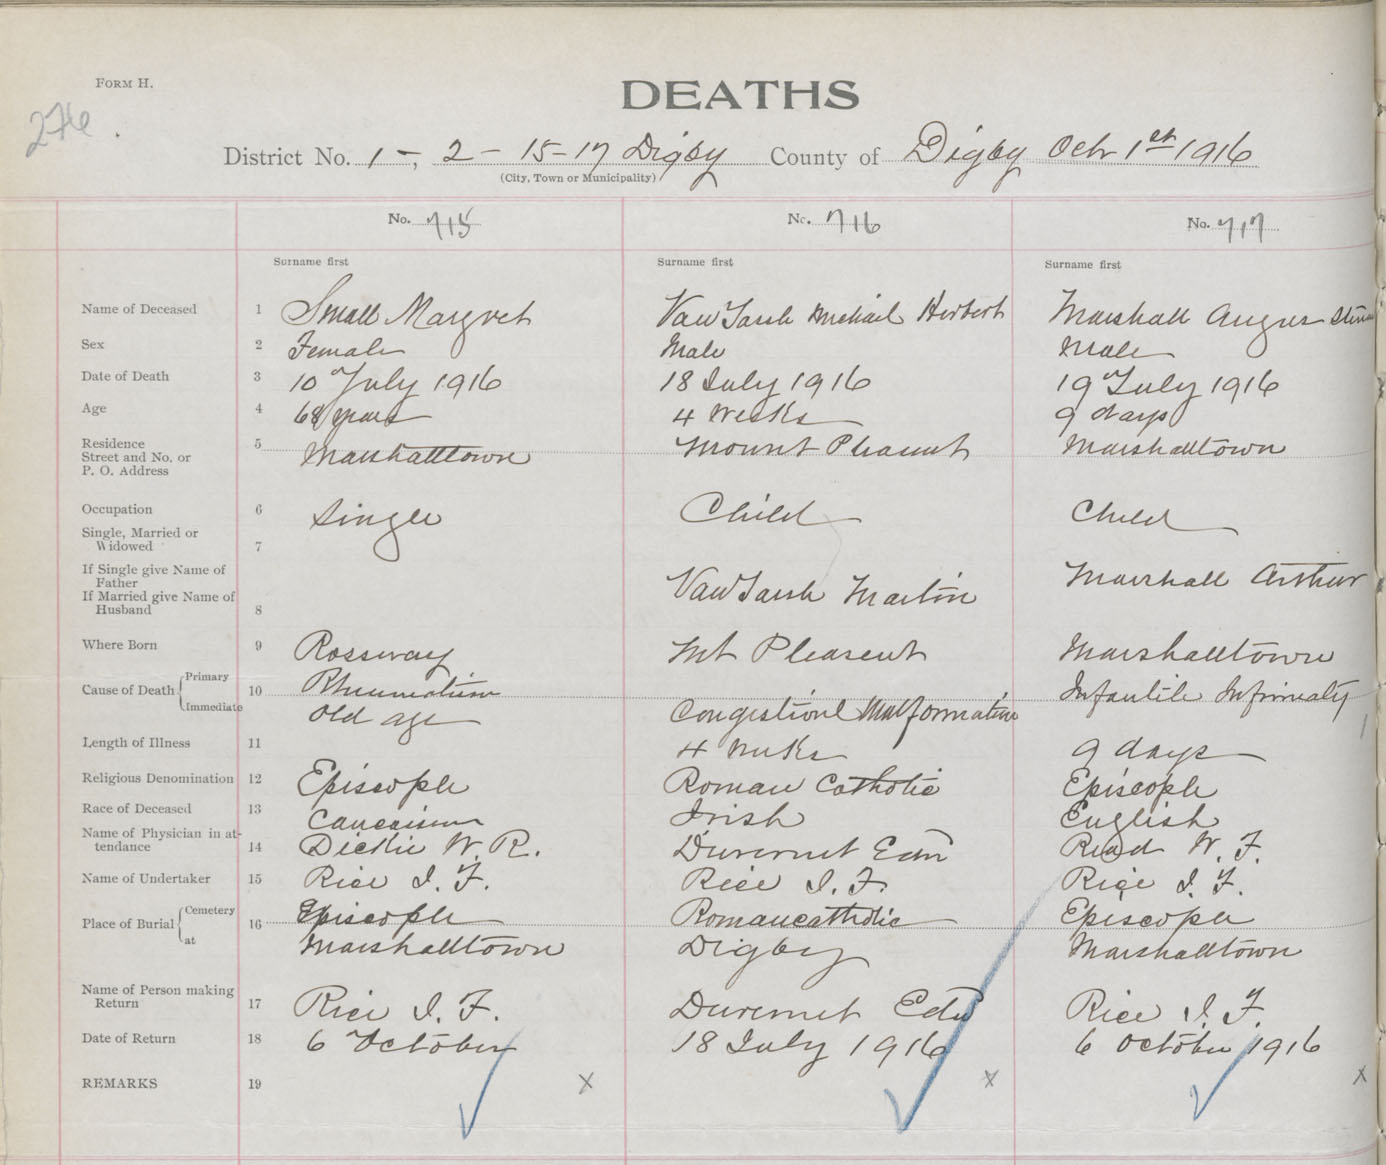 FORM H.
DEATHS
276
District No. 1-, 2 - 15-17 Digby County of Digby Octr 1st 1916
(City, Town or Municipality)
No. 715 No. 716 No. 717
Surname first Surname first Surname first
Name of Deceased 1 Small Margret Michael Herbert Marshall Angus
Sex 2 Female Male Male
Date of Death 3 10 July 1916 18 July 1916 19 July 1916
Age 4 68 years 4 Weeks 9 days
Residence 5
Street and No. or
P. O. Address Marshalltown Mount Pleasent Marshalltown
Occupation 6 Single Child Child
Single, Married or
Widowed 7
If Single give Name of
Father Marshall Arthur
If Married give Name of
Husband 8 Martin
Where Born 9 Rossway Mt Pleasent Marshalltown
Cause of Death Primary 10 Rhumatism Infantile Infirmaty
Immediate Old age Congestionl Malformation
Length of Illness 11 4 weeks 9 days
Religious Denomination 12 Episcople Roman Catholic Episcople
Race of Deceased 13 Irish English
Name of Physician in at-
tendance 14 Dickie W. R. Duvernet Edn Read W. F.
Name of Undertaker 15 Rice I. F. Rice I. F. Rice I. F.
Place of Burial Cemetery 16 Episcople Romancatholic Episcople
at Marshalltown Digby Marshalltown
Name of Person making
Return 17 Rice I. F. Duvernet Edn Rice I. F.
Date of Return 18 6 October 18 July 1916 6 October 1916
REMARKS 19 x x x